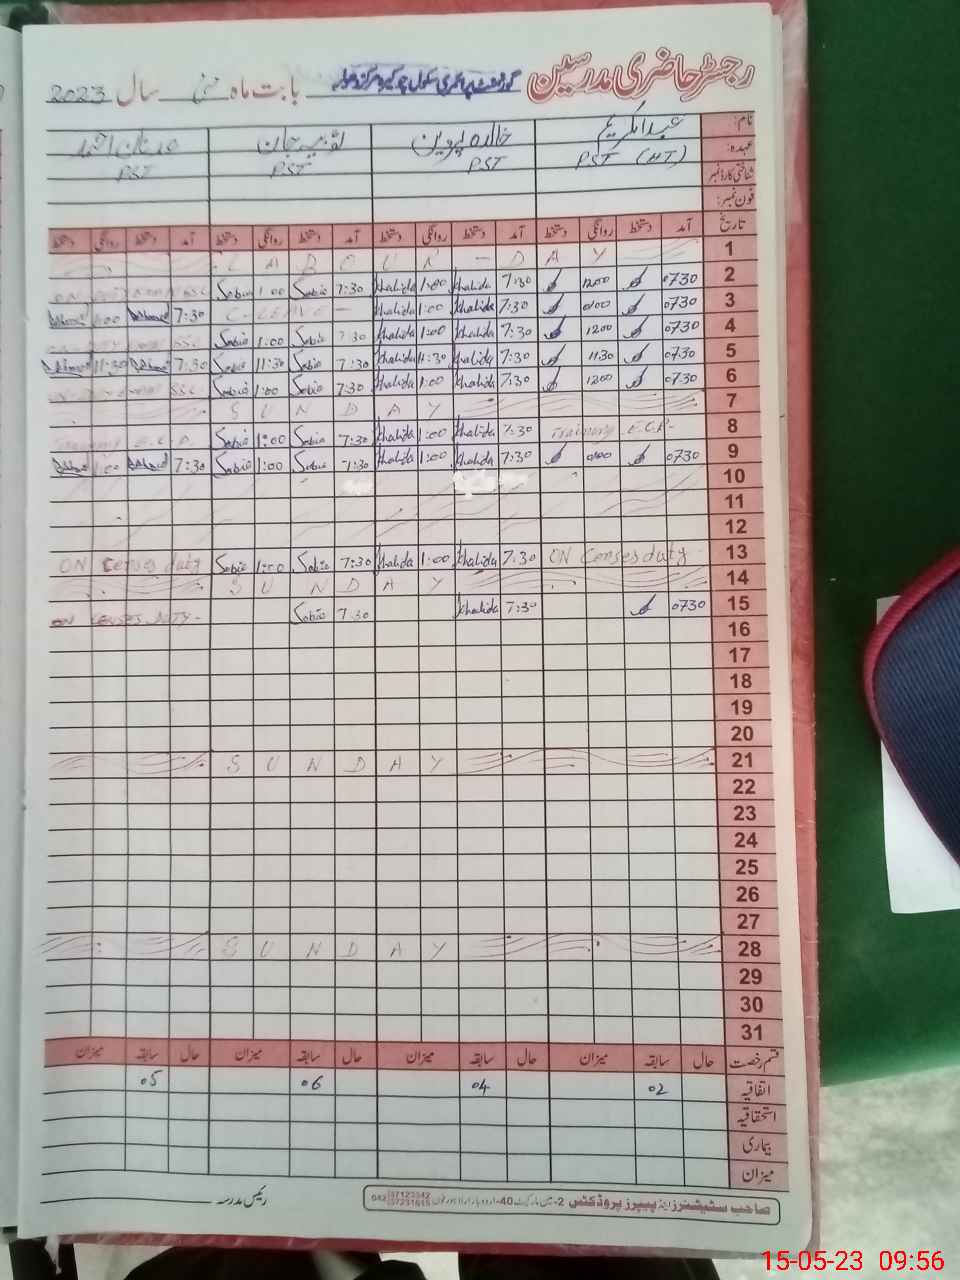 رجسٹر حاضری مدرسین گورنمنٹ پرائمری سکول بابت ماہ مئی سال 2023
نام: عبدالکریم خالدہ پروین جان
عہدہ: PST (HT) PST PST PST
شناختی کارڈ نمبر
فون نمبر:
تاریخ آمد دستخط روانگی دستخط آمد دستخط روانگی دستخط آمد دستخط روانگی دستخط آمد دستخط روانگی دستخط
1 LABOUR - DAY
2 0730 1200 7:30 Khalida 1:00 Khalida 7:30 Sobia 1:00 Sobia
3 0730 0100 7:30 Khalida 1:00 Khalida C-LEAVE - 7:30 1:00
4 0730 1200 7:30 Khalida 1:00 Khalida 7:30 Sobia 1:00 Sobia
5 0730 1130 7:30 Khalida 11:30 Khalida 7:30 Sobia 11:30 Sobia 7:30 11:30
6 0730 1200 7:30 Khalida 1:00 Khalida 7:30 Sobia 1:00 Sobia
7 SUNDAY
8 Training E.C.P- 7:30 Khalida 1:00 Khalida 7:30 Sobia 1:00 Sobia Training E.C.P.
9 0730 0100 7:30 Khalida 1:00 Khalida 7:30 Sobia 1:00 Sobia 7:30 1:00
10
11
12
13 ON Censes duty 7:30 Khalida 1:00 Khalida 7:30 Sobia 1:00 Sobia ON Censes duty
14 SUNDAY
15 0730 7:30 Khalida 7:30 Sobia ON CENSES DUTY-
16
17
18
19
20
21 SUNDAY
22
23
24
25
26
27
28 SUNDAY
29
30
31
قسم رخصت حال سابقہ میزان حال سابقہ میزان حال سابقہ میزان حال سابقہ میزان
اتفاقیہ 02 04 06 05
استحقاقیہ
بیماری
میزان
صاحب سٹیشنرز اینڈ پیپرز پروڈکٹس 2-مین مارکیٹ 40-اردو بازار لاہور فون 042 37123342 37231615
رئیس مدرسہ
15-05-23 09:56